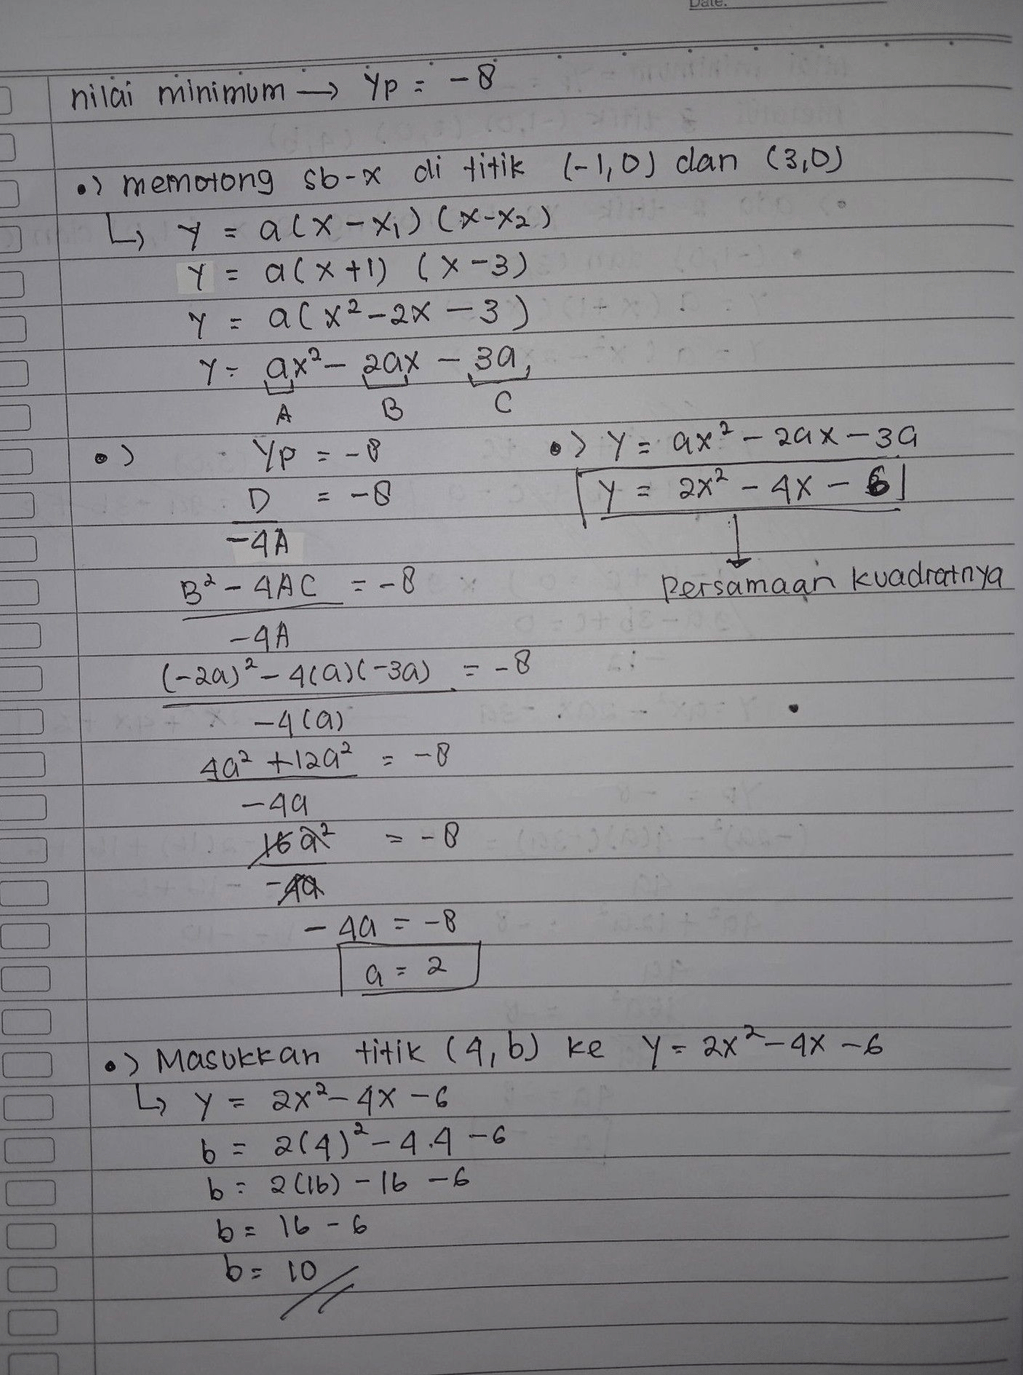 Date:
nilai minimum → Yp = -8
•) memotong sb-x di titik (-1,0) dan (3,0)
↳ Y = a(x-x₁) (x-x₂)
Y = a(x+1) (x-3)
Y = a(x²-2x-3)
Y = ax² - 2ax - 3a
A B C
•) Yp = -8
D/-4A = -8
B² - 4AC/-4A = -8
(-2a)² - 4(a)(-3a)/-4(a) = -8
4a² + 12a²/-4a = -8
16a²/-4a = -8
-4a = -8
a = 2
•) Y = ax² - 2ax - 3a
Y = 2x² - 4x - 6
↓
Persamaan kuadratnya
•) Masukkan titik (4,b) ke Y = 2x² - 4x - 6
↳ Y = 2x² - 4x - 6
b = 2(4)² - 4.4 - 6
b = 2(16) - 16 - 6
b = 16 - 6
b = 10